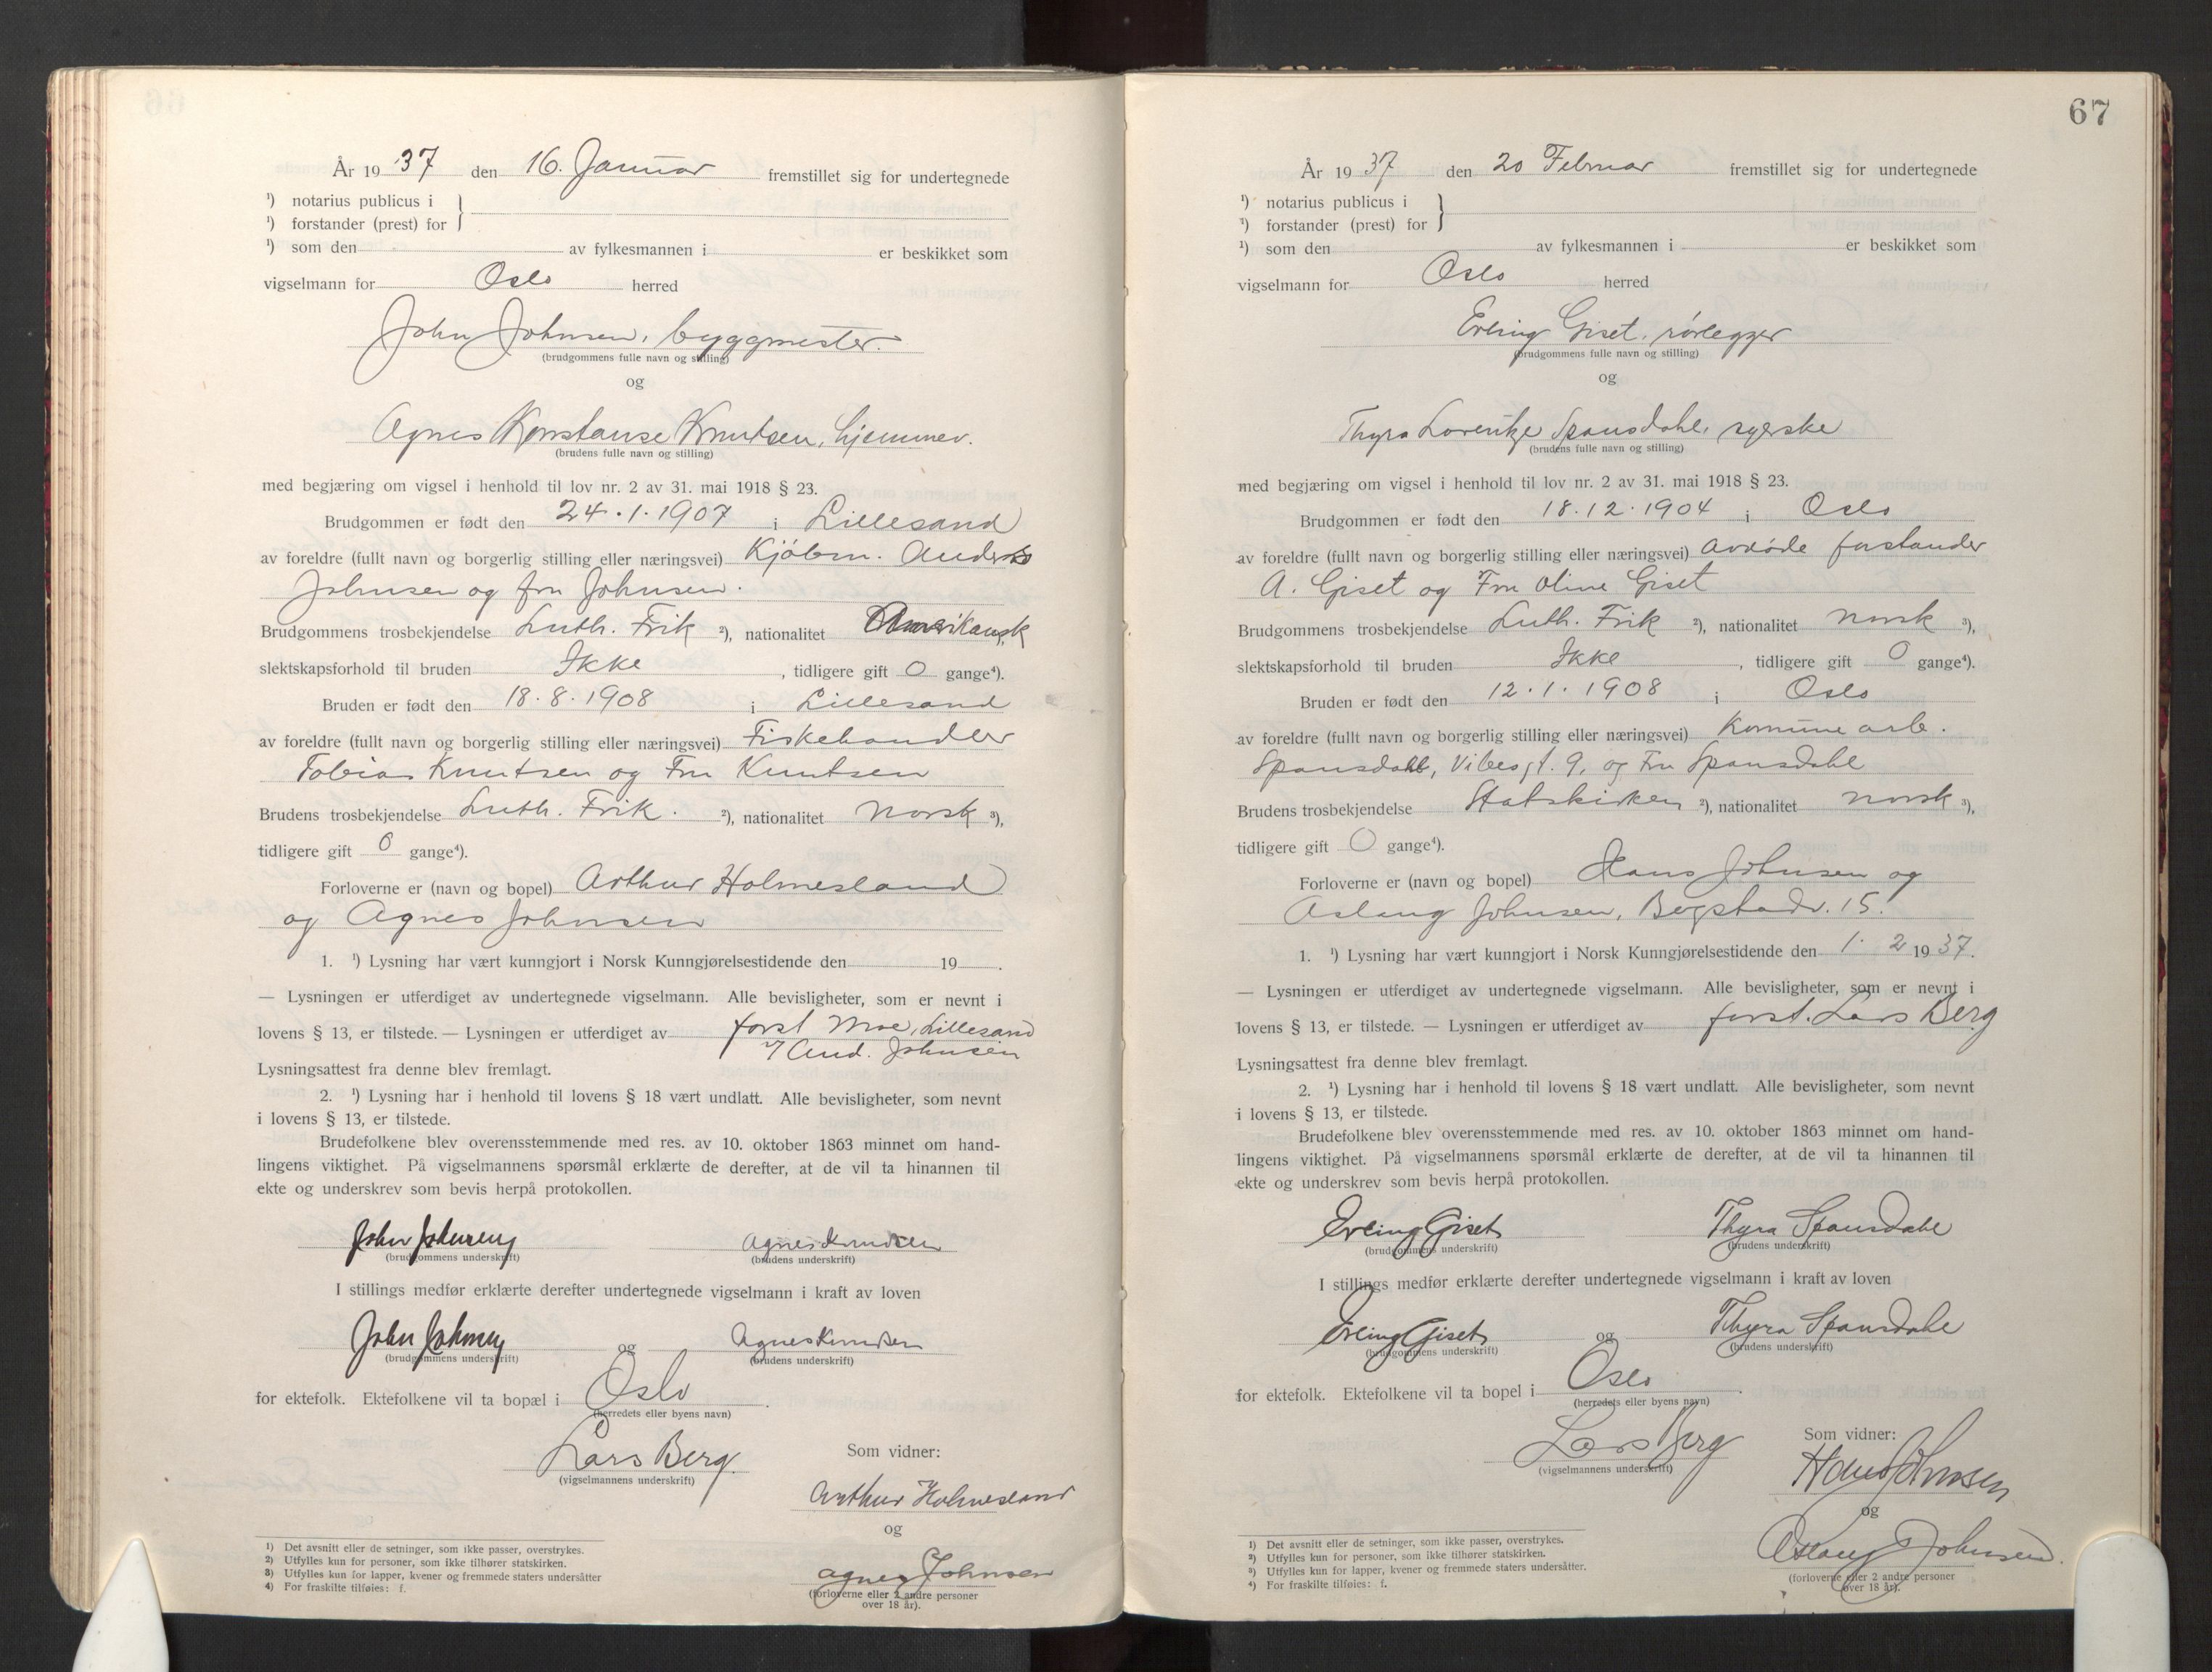 År 19 37 den 16. Januar fremstillet sig for undertegnede
¹) notarius publicus i
¹) forstander (prest) for
¹) som den av fylkesmannen i er beskikket som
vigselmann for Oslo herred
John Johnsen, byggmester.
(brudgommens fulle navn og stilling)
og
Agnes Konstanse Knutsen, hjemmev.
(brudens fulle navn og stilling)
med begjæring om vigsel i henhold til lov nr. 2 av 31. mai 1918 § 23.
Brudgommen er født den 24.1.1907 i Lillesand
av foreldre (fullt navn og borgerlig stilling eller næringsvei) Kjøbm. Anders
Johnsen og fru Johnsen.
Brudgommens trosbekjendelse Luth. Frik ²), nationalitet Amerikansk
slektskapsforhold til bruden Ikke, tidligere gift 0 gange⁴).
Bruden er født den 18.8.1908 i Lillesand
av foreldre (fullt navn og borgerlig stilling eller næringsvei) Fiskehandler
Tobias Knutsen og Fru Knutsen
Brudens trosbekjendelse Luth. Frik. ²), nationalitet norsk ³),
tidligere gift 0 gange⁴).
Forloverne er (navn og bopel) Arthur Holmesland
og Agnes Johnsen
1. ¹) Lysning har vært kunngjort i Norsk Kunngjørelsestidende den 19 .
— Lysningen er utferdiget av undertegnede vigselmann. Alle bevisligheter, som er nevnt i
lovens § 13, er tilstede. — Lysningen er utferdiget av forst Moe, Lillesand
And. Johnsen
Lysningsattest fra denne blev fremlagt.
2. ¹) Lysning har i henhold til lovens § 18 vært undlatt. Alle bevisligheter, som nevnt
i lovens § 13, er tilstede.
Brudefolkene blev overensstemmende med res. av 10. oktober 1863 minnet om hand-
lingens viktighet. På vigselmannens spørsmål erklærte de derefter, at de vil ta hinannen til
ekte og underskrev som bevis herpå protokollen.
John Johnsen Agnes Knudsen
(brudgommens underskrift) (brudens underskrift)
I stillings medfør erklærte derefter undertegnede vigselmann i kraft av loven
John Johnsen og Agnes Knudsen
(brudgommens underskrift) (brudens underskrift)
for ektefolk. Ektefolkene vil ta bopæl i Oslo.
(herredets eller byens navn)
Lars Berg.
(vigselmannens underskrift)
Som vidner:
Arthur Holmesland
og
Agnes Johnsen
(forloverne eller 2 andre personer
over 18 år).
¹) Det avsnitt eller de setninger, som ikke passer, overstrykes.
²) Utfylles kun for personer, som ikke tilhører statskirken.
³) Utfylles kun for lapper, kvener og fremmede staters undersåtter
⁴) For fraskilte tilføies: f.
67
År 19 37 den 20 Februar fremstillet sig for undertegnede
¹) notarius publicus i
¹) forstander (prest) for
¹) som den av fylkesmannen i er beskikket som
vigselmann for Oslo herred
Erling Giset, rørlegger
(brudgommens fulle navn og stilling)
og
Thyra Lovenize Spansdahl, syerske
(brudens fulle navn og stilling)
med begjæring om vigsel i henhold til lov nr. 2 av 31. mai 1918 § 23.
Brudgommen er født den 18.12.1904 i Oslo
av foreldre (fullt navn og borgerlig stilling eller næringsvei) avdøde forstander
A. Giset og Fru Oline Giset
Brudgommens trosbekjendelse Luth. Frik ²), nationalitet norsk ³),
slektskapsforhold til bruden Ikke, tidligere gift 0 gange⁴).
Bruden er født den 12.1.1908 i Oslo
av foreldre (fullt navn og borgerlig stilling eller næringsvei) Komune arb.
Spansdahl, Vibesgt. 9, og Fru Spansdahl
Brudens trosbekjendelse Statskirken ²), nationalitet norsk ³),
tidligere gift 0 gange⁴).
Forloverne er (navn og bopel) Hans Johnsen og
Aslaug Johnsen, Bogstadv. 15.
1. ¹) Lysning har vært kunngjort i Norsk Kunngjørelsestidende den 1. 2 19 37.
— Lysningen er utferdiget av undertegnede vigselmann. Alle bevisligheter, som er nevnt i
lovens § 13, er tilstede. — Lysningen er utferdiget av forst. Lars Berg
Lysningsattest fra denne blev fremlagt.
2. ¹) Lysning har i henhold til lovens § 18 vært undlatt. Alle bevisligheter, som nevnt
i lovens § 13, er tilstede.
Brudefolkene blev overensstemmende med res. av 10. oktober 1863 minnet om hand-
lingens viktighet. På vigselmannens spørsmål erklærte de derefter, at de vil ta hinannen til
ekte og underskrev som bevis herpå protokollen.
Erling Giset Thyra Spansdahl
(brudgommens underskrift) (brudens underskrift)
I stillings medfør erklærte derefter undertegnede vigselmann i kraft av loven
Erling Giset og Thyra Spansdahl
(brudgommens underskrift) (brudens underskrift)
for ektefolk. Ektefolkene vil ta bopel i Oslo.
(herredets eller byens navn)
Lars Berg
(vigselmannens underskrift)
Som vidner:
Hans Johnsen
og
Aslaug Johnsen.
(forloverne eller 2 andre personer
over 18 år).
¹) Det avsnitt eller de setninger, som ikke passer, overstrykes.
²) Utfylles kun for personer, som ikke tilhører statskirken.
³) Utfylles kun for lapper, kvener og fremmede staters undersåtter.
⁴) For fraskilte tilføies: f.